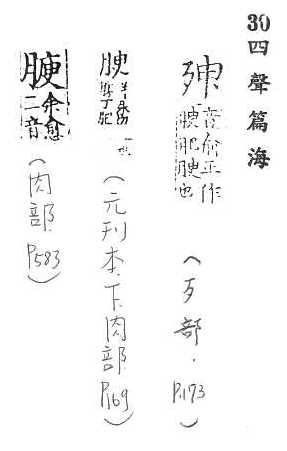 30四聲篇海
音俞正作
腴肥腴也
(歹部.P.173)
腴
(元刊本.下肉部.P.169)
腴余愈
二音
(肉部.P.583)